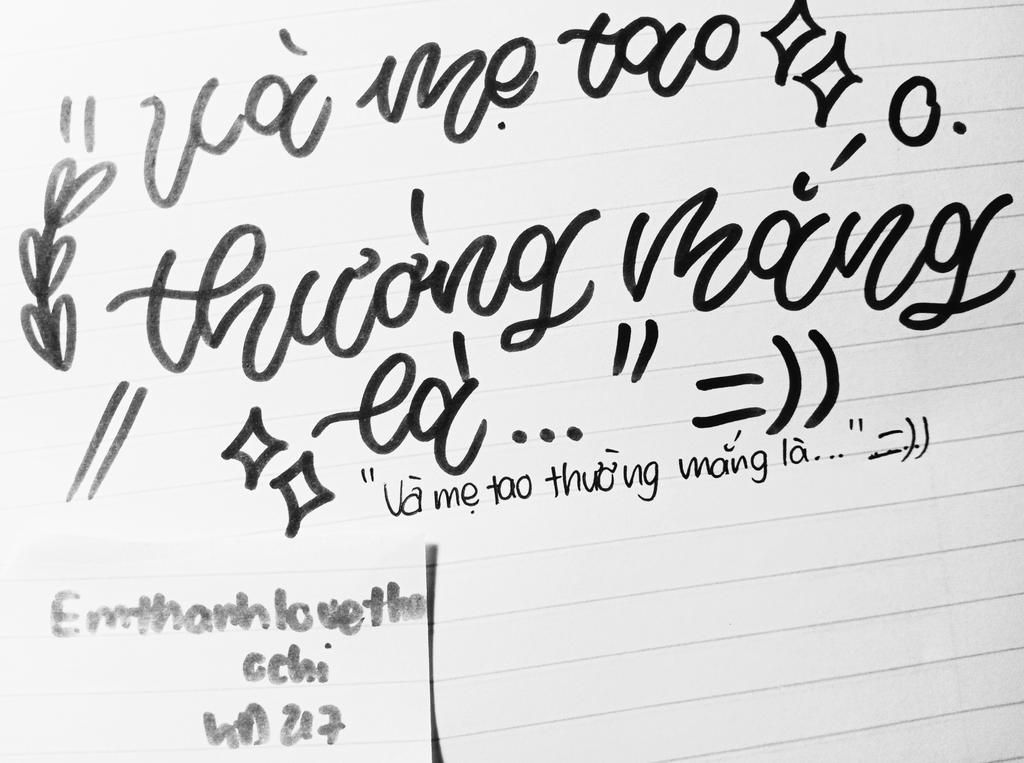 "Và mẹ tao
O.
thường mắng
là..." =))
"Và mẹ tao thường mắng là..." =))
Emthanhlovethu
cchi